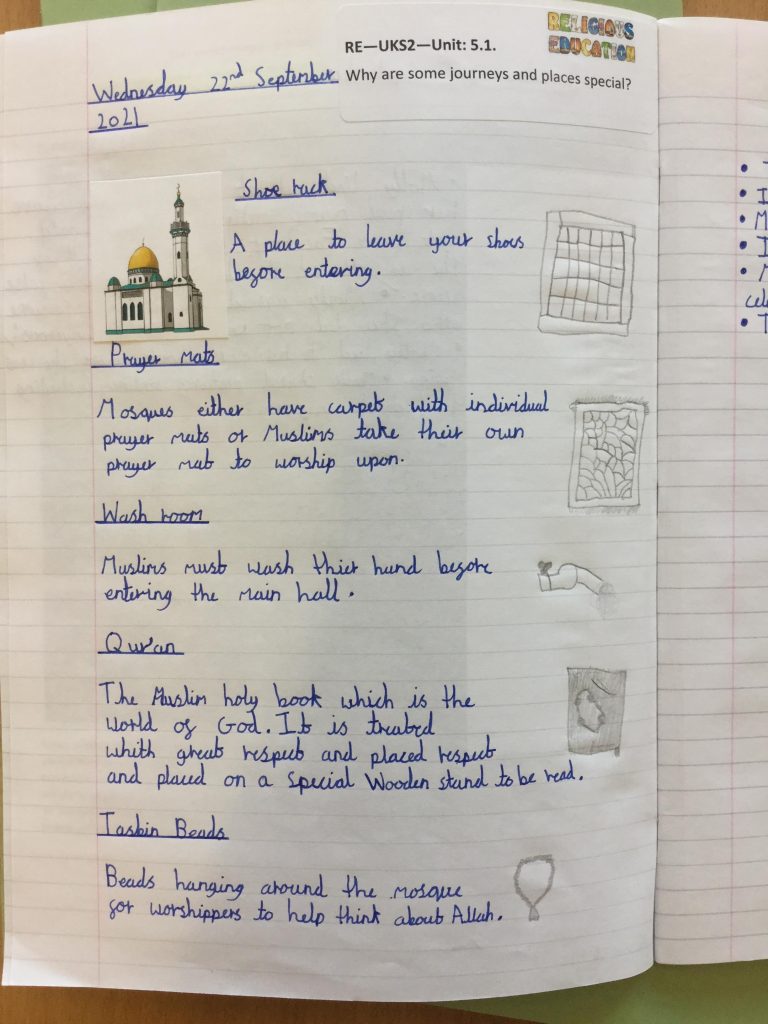 RELIGIOUS
EDUCATION
RE—UKS2—Unit: 5.1.
Why are some journeys and places special?
Wednesday 22nd September
2021
Shoe rack
A place to leave your shoes
before entering.
Prayer mats
Mosques either have carpets with individual
prayer mats or Muslims take their own
prayer mat to worship upon.
Wash room
Muslims must wash thier hand before
entering the main hall.
Qur'an
The Muslim holy book which is the
world of God. It is treated
whith great respect and placed respect
and placed on a special Wooden stand to be read.
Tasbin Beads
Beads hanging around the mosque
for worshippers to help think about Allah.